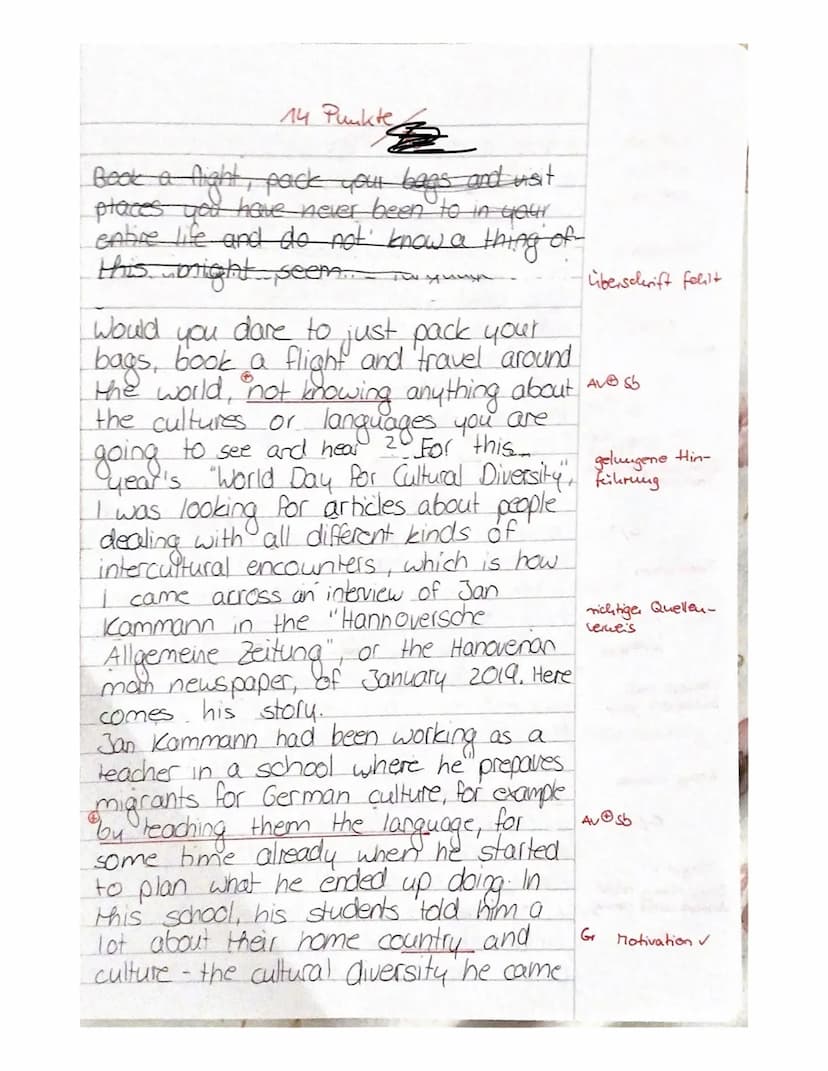 14 Punkte
Book a flight, pack your bags and visit
places you have never been to in your
entire life and do not know a thing of
this might seem
Überschrift fehlt
Would you dare to just pack your
bags, book a flight and travel around
the world, not knowing anything about
AV⊕Sb
the cultures or languages you are
going to see and hear ? For this
gelungene Hin-
year's "World Day for Cultural Diversity",
führung
I was looking for articles about people
dealing with all different kinds of
intercultural encounters, which is how
I came across an interview of Jan
richtiger Quellen-
Kammann in the "Hannoversche
verweis
Allgemeine Zeitung", or the Hanoverian
main newspaper, of January 2019. Here
comes his story.
Jan Kammann had been working as a
teacher in a school where he prepares
migrants for German culture, for example
by teaching them the language, for
AV⊕Sb
some time already when he started
to plan what he ended up doing. In
this school, his students told him a
lot about their home country and
Gr Motivation ✓
culture - the cultural diversity he came